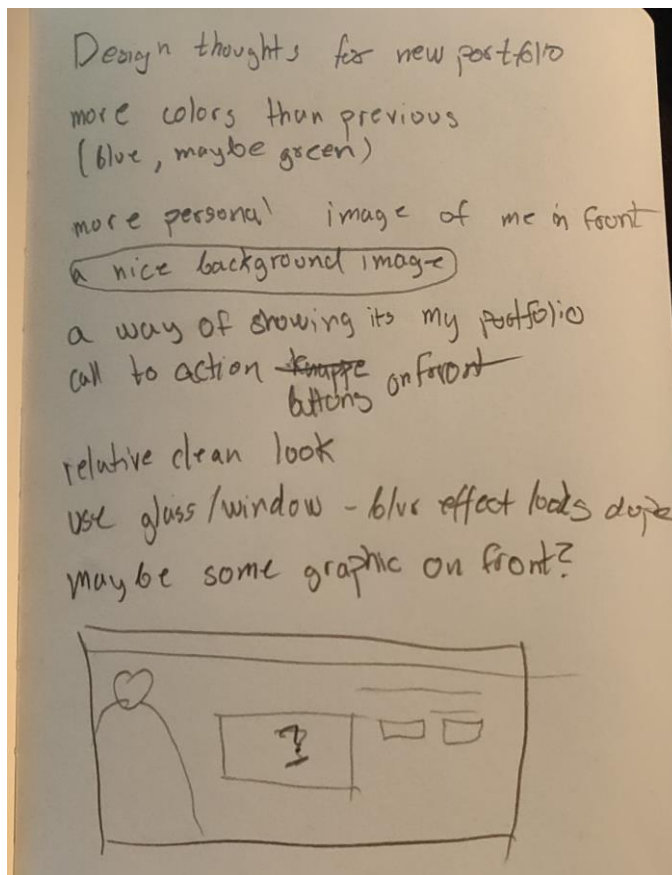 Design thoughts for new portfolio
more colors than previous
(blue, maybe green)
more personal image of me in front
a nice background image
a way of showing its my portfolio
call to action knappe on front
buttons
relative clean look
use glass/window - blur effect looks dope
maybe some graphic on front?
?